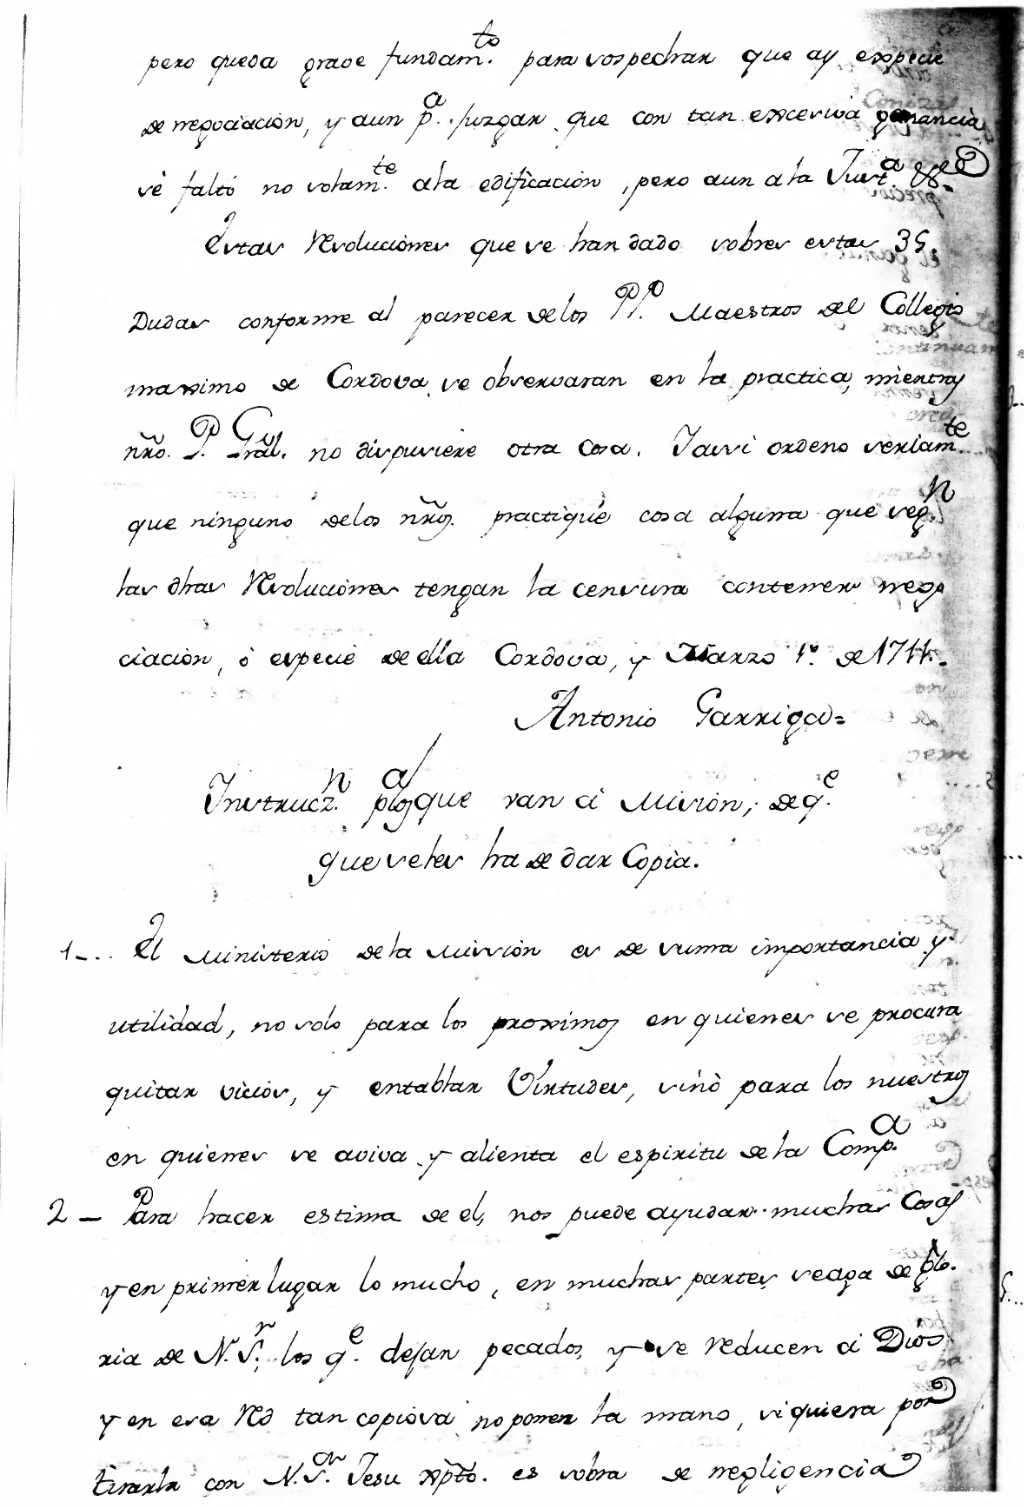 pero queda grave fundam.to para sospechar que ay especie
de negociacion, y aun p.a juzgar que con tan excesiva ganancia
se faltó no solam.te ala edificacion, pero aun a la Just.a &.a
Estas Resoluciones que se han dado sobres estas 35.
Dudas conforme al parecer delos PP. Maestros del Collegio
maximo de Cordova se observaran en la practica, mientras
nro. P. Gral. no dispusiere otra cosa. Iassi ordeno seriam.te
que ninguno delos nros. practique cosa alguna que seg.n
las dhas Resoluciones tengan la censura contener nego
ciacion, ó especie de ella Cordova, y Marzo 1.o de 1714.
Antonio Garriga=
Instrucz.n pa los que van á Mission, de q.e
que seles ha de dar Copia.
1-.. El Ministerio dela Mission es de suma importancia y
utilidad, no solo para los proximos en quienes se procura
quitar vicios, y entablar Virtudes, sino para los nuestros
en quienes se aviva y alienta el espiritu de la Comp.a
2 - Para hacer estima de el, nos puede ayudar muchas Cosas
y en primer lugar lo mucho, en muchas partes, seaga de glo.
ria de N. S.r, los q.e dejan pecados, y se reducen á Dios
y en esa Red tan copiosa no poner la mano, si quiera por
tirarla con N. S.r Jesu Xpto. es sobra de negligencia